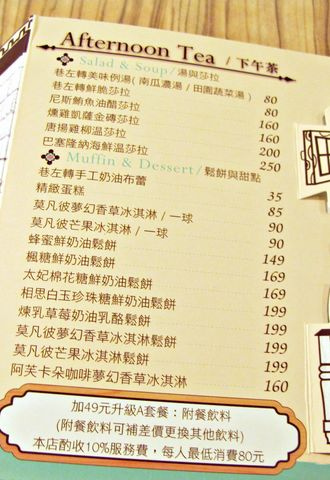 Afternoon Tea / 下午茶
Salad & Soup / 湯與莎拉
巷左轉美味例湯( 南瓜濃湯 / 田園蔬菜湯 ) 80
巷左轉鮮脆莎拉 80
尼斯鮪魚油醋莎拉 160
燻雞凱薩金磚莎拉 160
唐揚雞柳溫莎拉 200
巴塞隆納海鮮溫莎拉 250
Muffin & Dessert / 鬆餅與甜點
巷左轉手工奶油布蕾 35
精緻蛋糕 85
莫凡彼夢幻香草冰淇淋 / 一球 90
莫凡彼芒果冰淇淋 / 一球 90
蜂蜜鮮奶油鬆餅 149
楓糖鮮奶油鬆餅 169
太妃棉花糖鮮奶油鬆餅 169
相思白玉珍珠糖鮮奶油鬆餅 169
煉乳草莓奶油乳酪鬆餅 199
莫凡彼夢幻香草冰淇淋鬆餅 199
莫凡彼芒果冰淇淋鬆餅 199
阿芙卡朵咖啡夢幻香草冰淇淋 160
加49元升級A套餐：附餐飲料
(附餐飲料可補差價更換其他飲料)
本店酌收10%服務費，每人最低消費80元